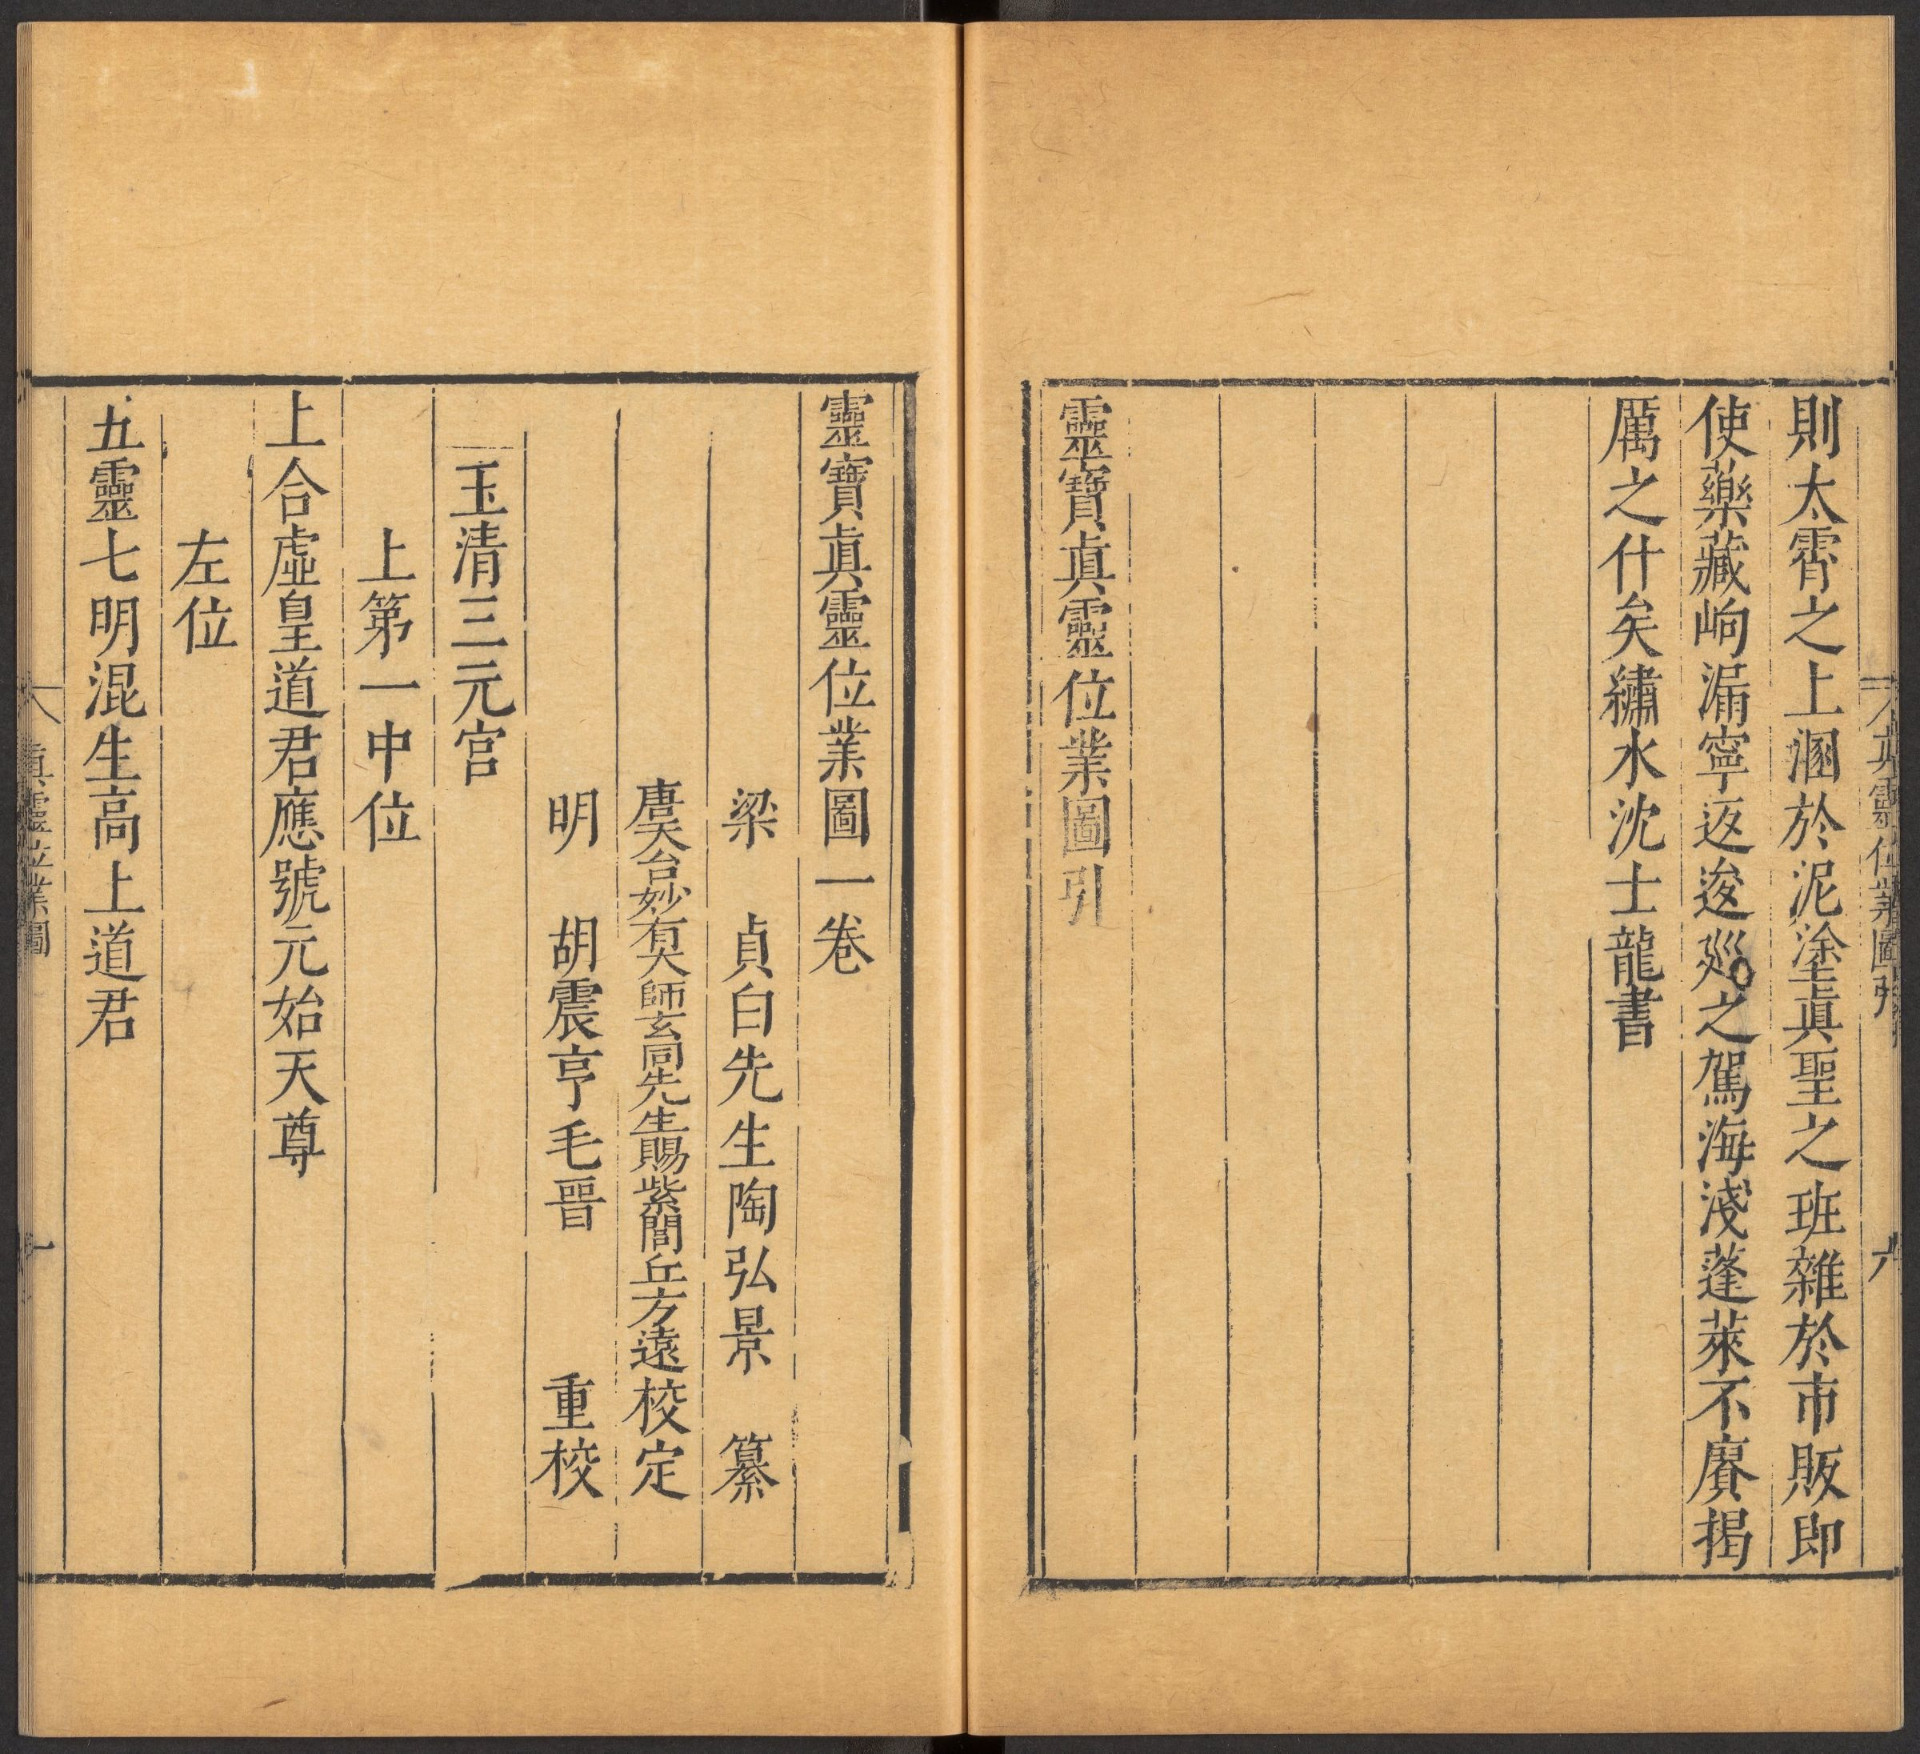 則太霄之上溷於泥塗眞聖之班雜於市販即
使藥藏岣漏寧返逡廵之駕海淺蓬萊不賡揭
厲之什矣繡水沈士龍書
靈寶眞靈位業圖引
靈寶眞靈位業圖一卷
梁　貞白先生陶弘景　纂
唐天台妙有大師玄同先生賜紫閭丘方遠校定
明　胡震亨毛晉　重校
玉清三元宮
上第一中位
上合虛皇道君應號元始天尊
左位
五靈七明混生高上道君
眞靈位業圖
一